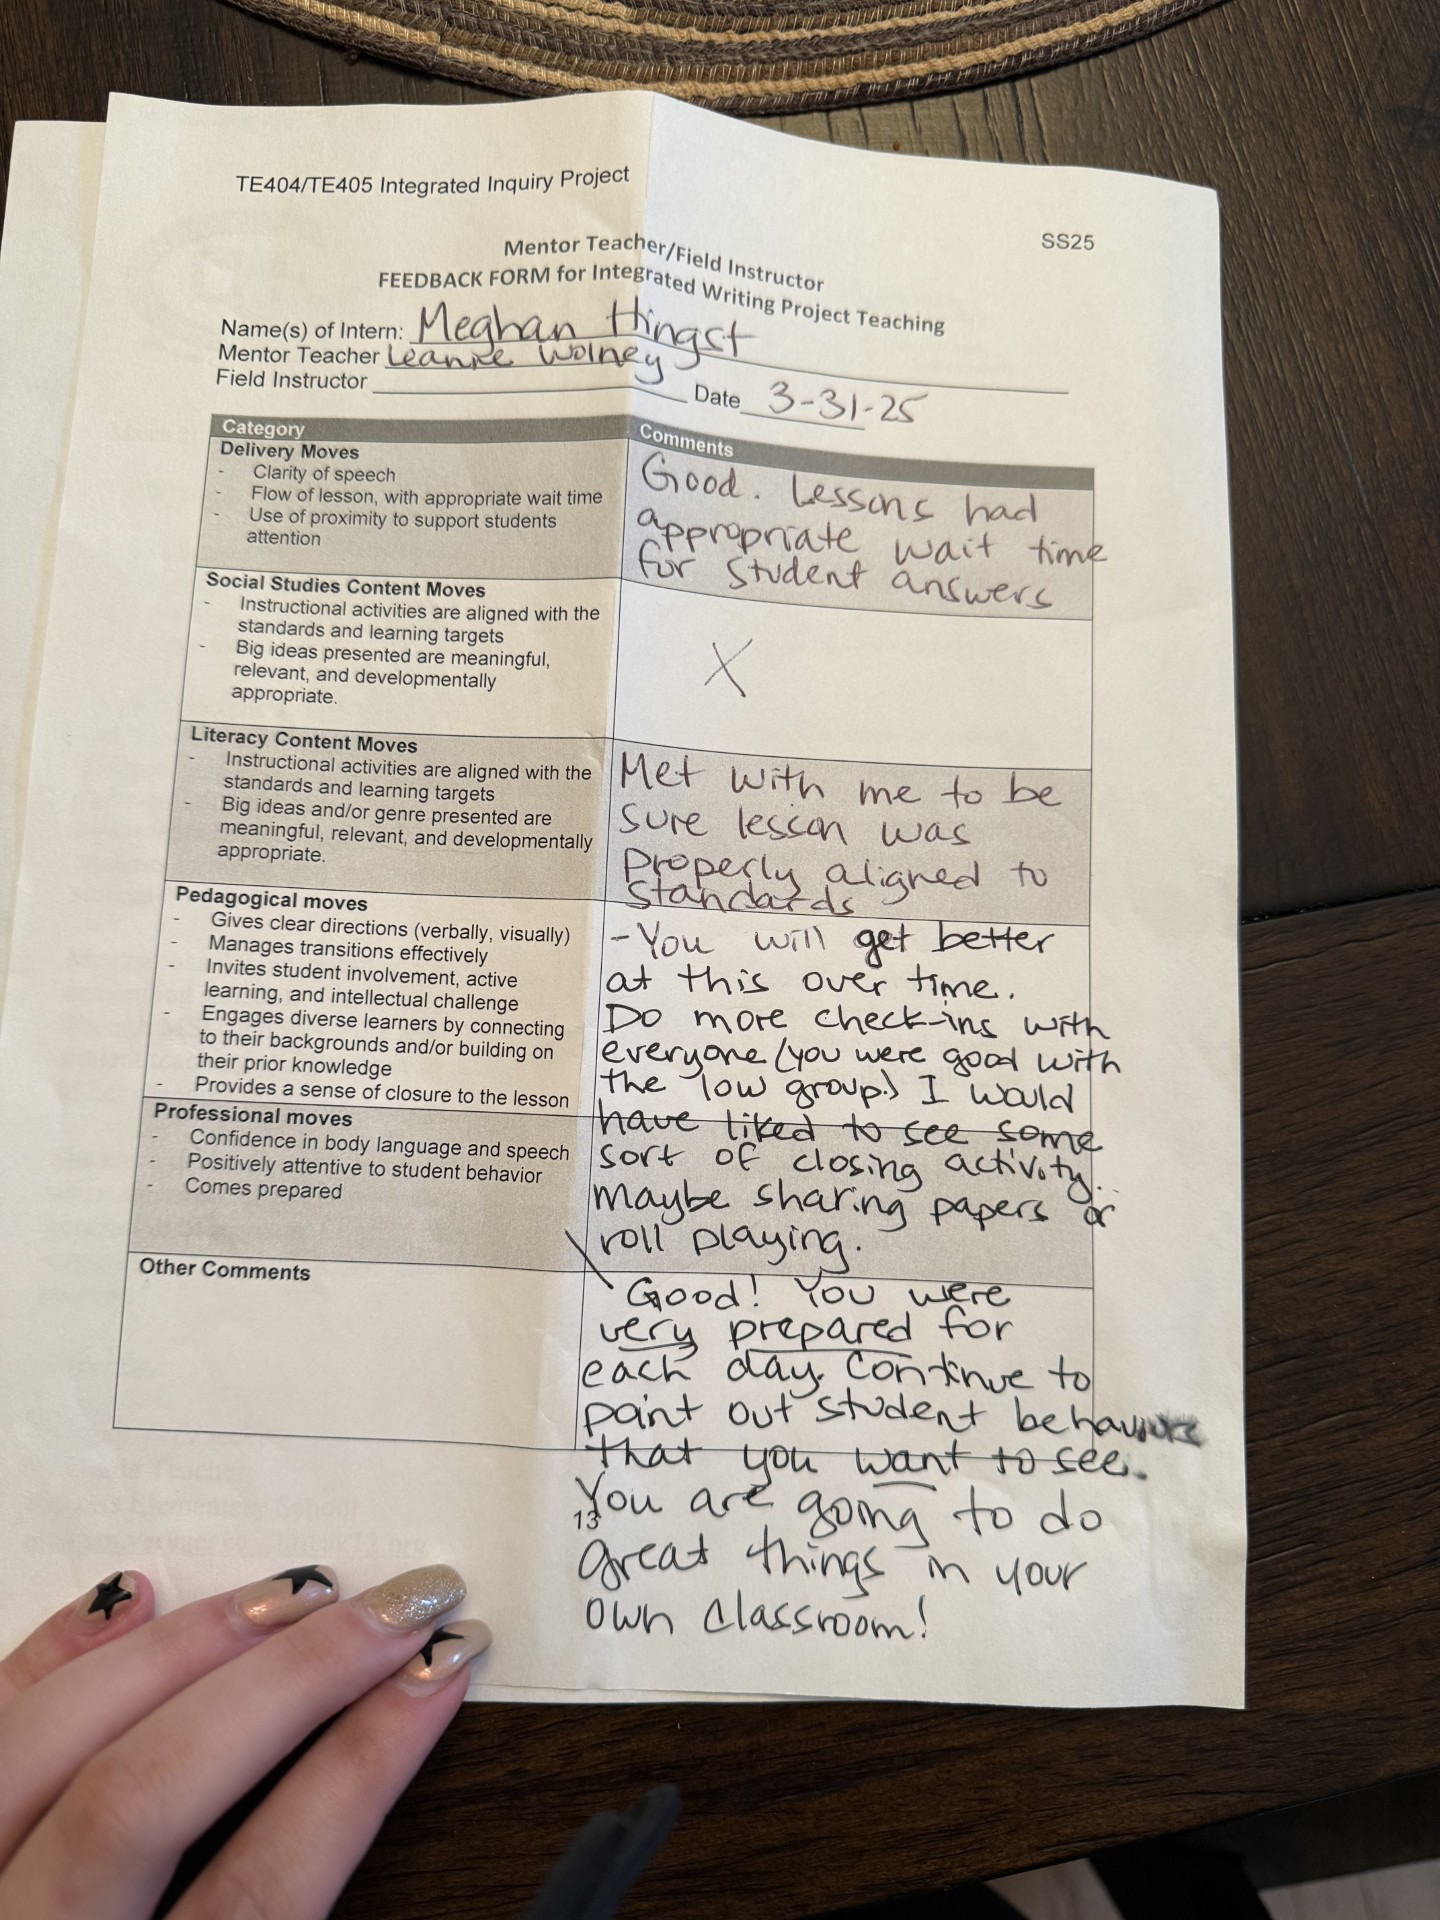 TE404/TE405 Integrated Inquiry Project
SS25
Mentor Teacher/Field Instructor
FEEDBACK FORM for Integrated Writing Project Teaching
Name(s) of Intern: Meghan Hingst
Mentor Teacher Leanne Wolney
Field Instructor
Date 3-31-25
Category
Comments
Delivery Moves
- Clarity of speech
- Flow of lesson, with appropriate wait time
- Use of proximity to support students
attention
Good. Lessons had
appropriate wait time
for student answers
Social Studies Content Moves
- Instructional activities are aligned with the
standards and learning targets
- Big ideas presented are meaningful,
relevant, and developmentally
appropriate.
X
Literacy Content Moves
- Instructional activities are aligned with the
standards and learning targets
- Big ideas and/or genre presented are
meaningful, relevant, and developmentally
appropriate.
Met with me to be
sure lesson was
properly aligned to
standards
Pedagogical moves
- Gives clear directions (verbally, visually)
- Manages transitions effectively
- Invites student involvement, active
learning, and intellectual challenge
- Engages diverse learners by connecting
to their backgrounds and/or building on
their prior knowledge
- Provides a sense of closure to the lesson
- You will get better
at this over time.
Do more check-ins with
everyone (you were good with
the low group.) I would
have liked to see some
sort of closing activity.
maybe sharing papers or
roll playing.
Professional moves
- Confidence in body language and speech
- Positively attentive to student behavior
- Comes prepared
Other Comments
Good! You were
very prepared for
each day. Continue to
point out student behaviors
that you want to see.
You are going to do
13
great things in your
own classroom!